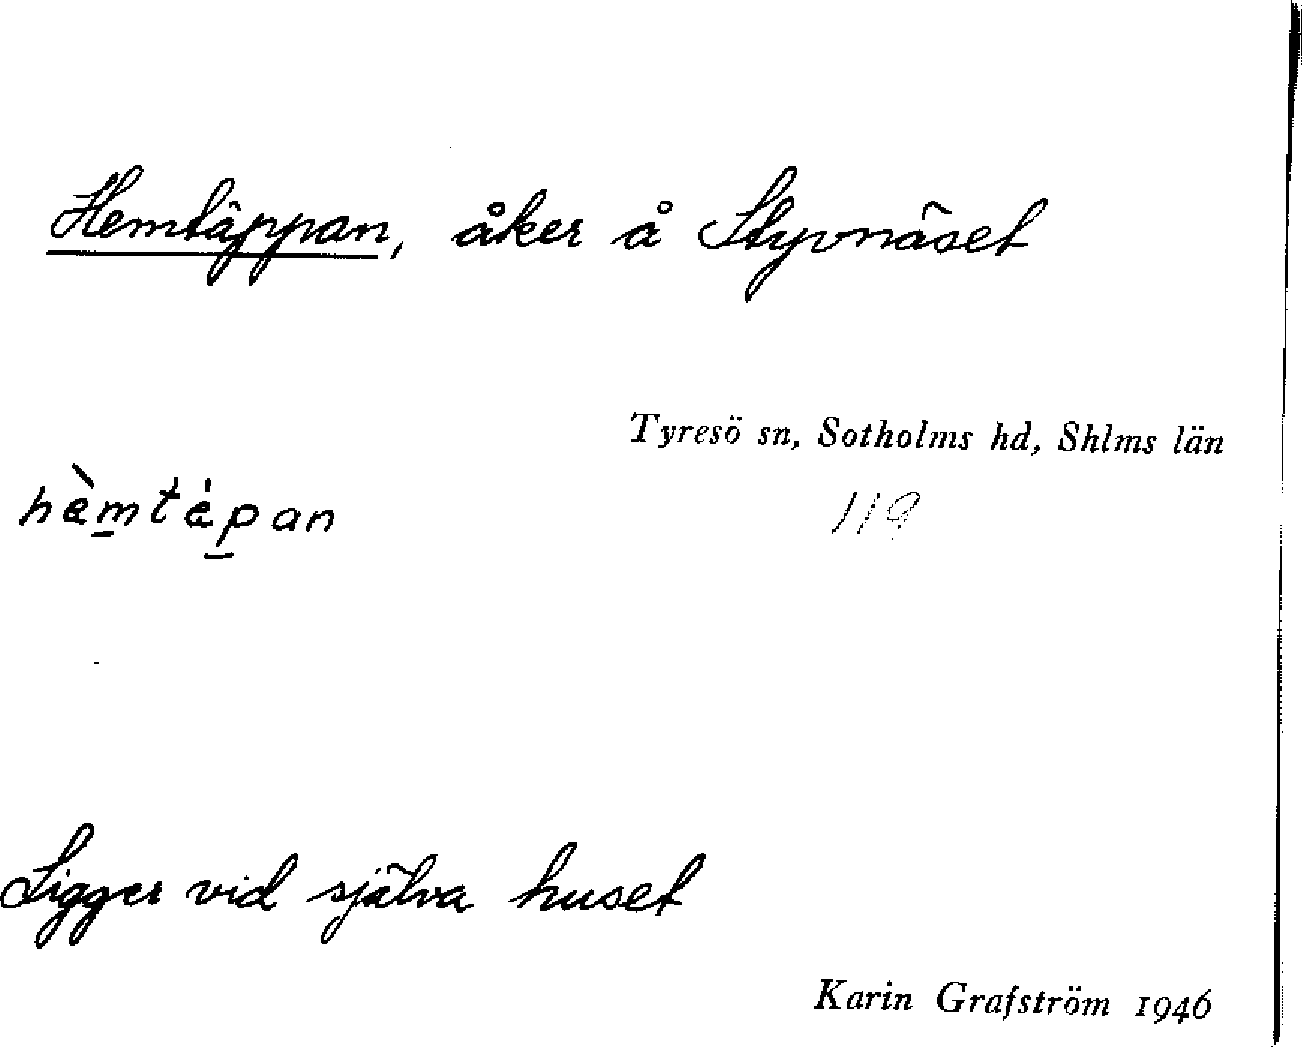 Hemtäppan, åker å Styvnäset
Tyresö sn, Sotholms hd, Shlms län
hæ̀mtæ̍pan
119
Ligger vid själva huset
Karin Grafström 1946